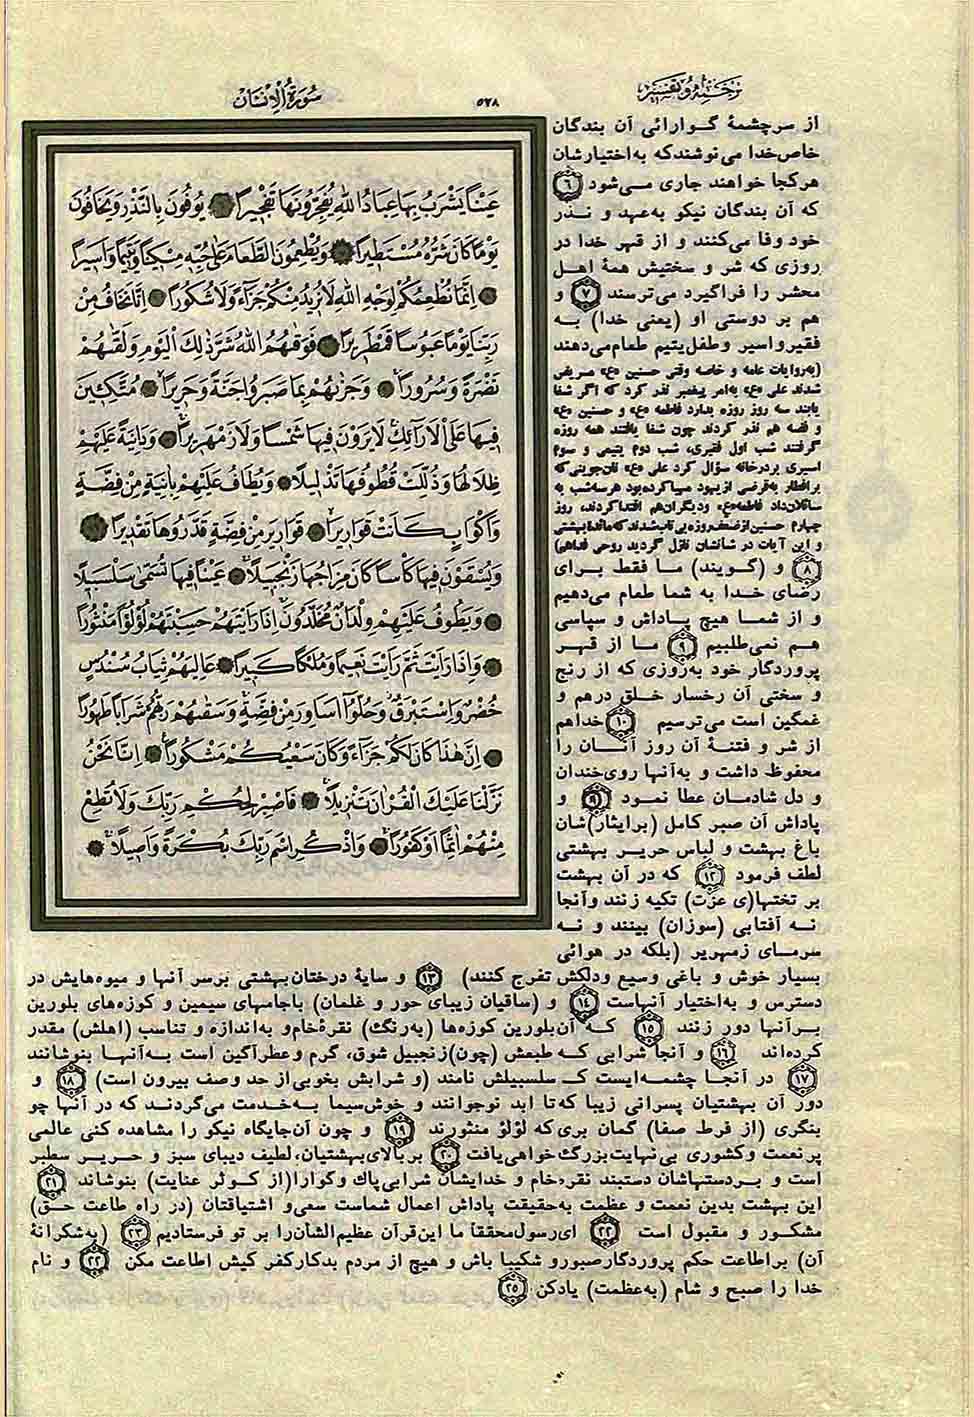 ترجمه و تفسیر
۵۷۸
سورة الانسان
عَيْنًا يَشْرَبُ بِهَا عِبَادُ اللهِ يُفَجِّرُونَهَا تَفْجِيرًا يُوفُونَ بِالنَّذْرِ وَيَخَافُونَ
يَوْمًا كَانَ شَرُّهُ مُسْتَطِيرًا وَيُطْعِمُونَ الطَّعَامَ عَلَى حُبِّهِ مِسْكِينًا وَيَتِيمًا وَاَسِيرًا
اِنَّمَا نُطْعِمُكُمْ لِوَجْهِ اللهِ لَا نُرِيدُ مِنْكُمْ جَزَاءً وَلَا شُكُورًا اِنَّا نَخَافُ مِنْ
رَبِّنَا يَوْمًا عَبُوسًا قَمْطَرِيرًا فَوَقٰيهُمُ اللهُ شَرَّ ذٰلِكَ الْيَوْمِ وَلَقّٰيهُمْ
نَضْرَةً وَسُرُورًا وَجَزٰيهُمْ بِمَا صَبَرُوا جَنَّةً وَحَرِيرًا مُتَّكِئِينَ
فِيهَا عَلَى الْاَرَائِكِ لَا يَرَوْنَ فِيهَا شَمْسًا وَلَا زَمْهَرِيرًا وَدَانِيَةً عَلَيْهِمْ
ظِلَالُهَا وَذُلِّلَتْ قُطُوفُهَا تَذْلِيلًا وَيُطَافُ عَلَيْهِمْ بِاٰنِيَةٍ مِنْ فِضَّةٍ
وَاَكْوَابٍ كَانَتْ قَوَارِيرَا قَوَارِيرَ مِنْ فِضَّةٍ قَدَّرُوهَا تَقْدِيرًا
وَيُسْقَوْنَ فِيهَا كَأْسًا كَانَ مِزَاجُهَا زَنْجَبِيلًا عَيْنًا فِيهَا تُسَمّٰى سَلْسَبِيلًا
وَيَطُوفُ عَلَيْهِمْ وِلْدَانٌ مُخَلَّدُونَ اِذَا رَاَيْتَهُمْ حَسِبْتَهُمْ لُؤْلُؤًا مَنْثُورًا
وَاِذَا رَاَيْتَ ثَمَّ رَاَيْتَ نَعِيمًا وَمُلْكًا كَبِيرًا عَالِيَهُمْ ثِيَابُ سُنْدُسٍ
خُضْرٌ وَاِسْتَبْرَقٌ وَحُلُّوا اَسَاوِرَ مِنْ فِضَّةٍ وَسَقٰيهُمْ رَبُّهُمْ شَرَابًا طَهُورًا
اِنَّ هٰذَا كَانَ لَكُمْ جَزَاءً وَكَانَ سَعْيُكُمْ مَشْكُورًا اِنَّا نَحْنُ
نَزَّلْنَا عَلَيْكَ الْقُرْاٰنَ تَنْزِيلًا فَاصْبِرْ لِحُكْمِ رَبِّكَ وَلَا تُطِعْ
مِنْهُمْ اٰثِمًا اَوْ كَفُورًا وَاذْكُرِ اسْمَ رَبِّكَ بُكْرَةً وَاَصِيلًا
از سرچشمهٔ گوارائی آن بندگان
خاص خدا می‌نوشند که به اختیارشان
هرکجا خواهند جاری می‌شود ۶
که آن بندگان نیکو به عهد و نذر
خود وفا می‌کنند و از قهر خدا در
روزی که شر و سختیش همهٔ اهل
محشر را فراگیرد می‌ترسند ۷ و
هم بر دوستی او (یعنی خدا) به
فقیر و اسیر و طفل یتیم طعام می‌دهند
(به روایات عامه و خاصه وقتی حسنین «ع» مریض
شدند علی «ع» به امر پیغمبر نذر کرد که اگر شفا
یابند سه روز روزه بدارد فاطمه «ع» و حسنین «ع»
و فضه هم نذر کردند چون شفا یافتند همه روزه
گرفتند شب اول فقیری، شب دوم یتیمی و سوم
اسیری بر در خانه سؤال کرد علی «ع» نان جوینی که
بر افطار به قرضی از یهود مهیا کرده بود هر سه شب به
سائلان داد فاطمه «ع» و دیگران هم اقتدا کردند، روز
چهارم حسنین از ضعف روزه بی تاب شدند که مائدهٔ بهشتی
و این آیات در شانشان نازل گردید روحی فداهم)
۸ و (گویند) ما فقط برای
رضای خدا به شما طعام می‌دهیم
و از شما هیچ پاداش و سپاسی
هم نمی‌طلبیم ۹ ما از قهر
پروردگار خود به روزی که از رنج
و سختی آن رخسار خلق درهم و
غمگین است می‌ترسیم ۱۰ خدا هم
از شر و فتنهٔ آن روز آنان را
محفوظ داشت و به آنها روی خندان
و دل شادمان عطا نمود ۱۱ و
پاداش آن صبر کامل (بر ایثار)شان
باغ بهشت و لباس حریر بهشتی
لطف فرمود ۱۲ که در آن بهشت
بر تختها(ی عزت) تکیه زنند و آنجا
نه آفتابی (سوزان) بینند و نه
سرمای زمهریر (بلکه در هوائی
بسیار خوش و باغی وسیع و دلکش تفرج کنند) ۱۳ و سایهٔ درختان بهشتی بر سر آنها و میوه‌هایش در
دسترس و به اختیار آنهاست ۱۴ و (ساقیان زیبای حور و غلمان) با جامهای سیمین و کوزه‌های بلورین
بر آنها دور زنند ۱۵ که آن بلورین کوزه‌ها (به رنگ) نقرهٔ خام و به اندازه و تناسب (اهلش) مقدر
کرده‌اند ۱۶ و آنجا شرابی که طبعش (چون) زنجبیل شوق، گرم و عطرآگین است به آنها بنوشانند
۱۷ در آنجا چشمه‌ایست که سلسبیلش نامند (و شرابش بخوبی از حد وصف بیرون است) ۱۸ و
دور آن بهشتیان پسرانی زیبا که تا ابد نوجوانند و خوش سیما به خدمت می‌گردند که در آنها چو
بنگری (از فرط صفا) گمان بری که لؤلؤ منثورند ۱۹ و چون آن جایگاه نیکو را مشاهده کنی عالمی
پر نعمت و کشوری بی‌نهایت بزرگ خواهی یافت ۲۰ بر بالای بهشتیان، لطیف دیبای سبز و حریر سطبر
است و بر دستهاشان دستبند نقره خام و خدایشان شرابی پاک و گوارا (از کوثر عنایت) بنوشاند ۲۱
این بهشت بدین نعمت و عظمت به حقیقت پاداش اعمال شماست سعی و اشتیاقتان (در راه طاعت حق)
مشکور و مقبول است ۲۲ ای رسول محققاً ما این قرآن عظیم الشأن را بر تو فرستادیم ۲۳ (به شکرانهٔ
آن) بر اطاعت حکم پروردگار صبور و شکیبا باش و هیچ از مردم بدکار کفر کیش اطاعت مکن ۲۴ و نام
خدا را صبح و شام (به عظمت) یاد کن ۲۵